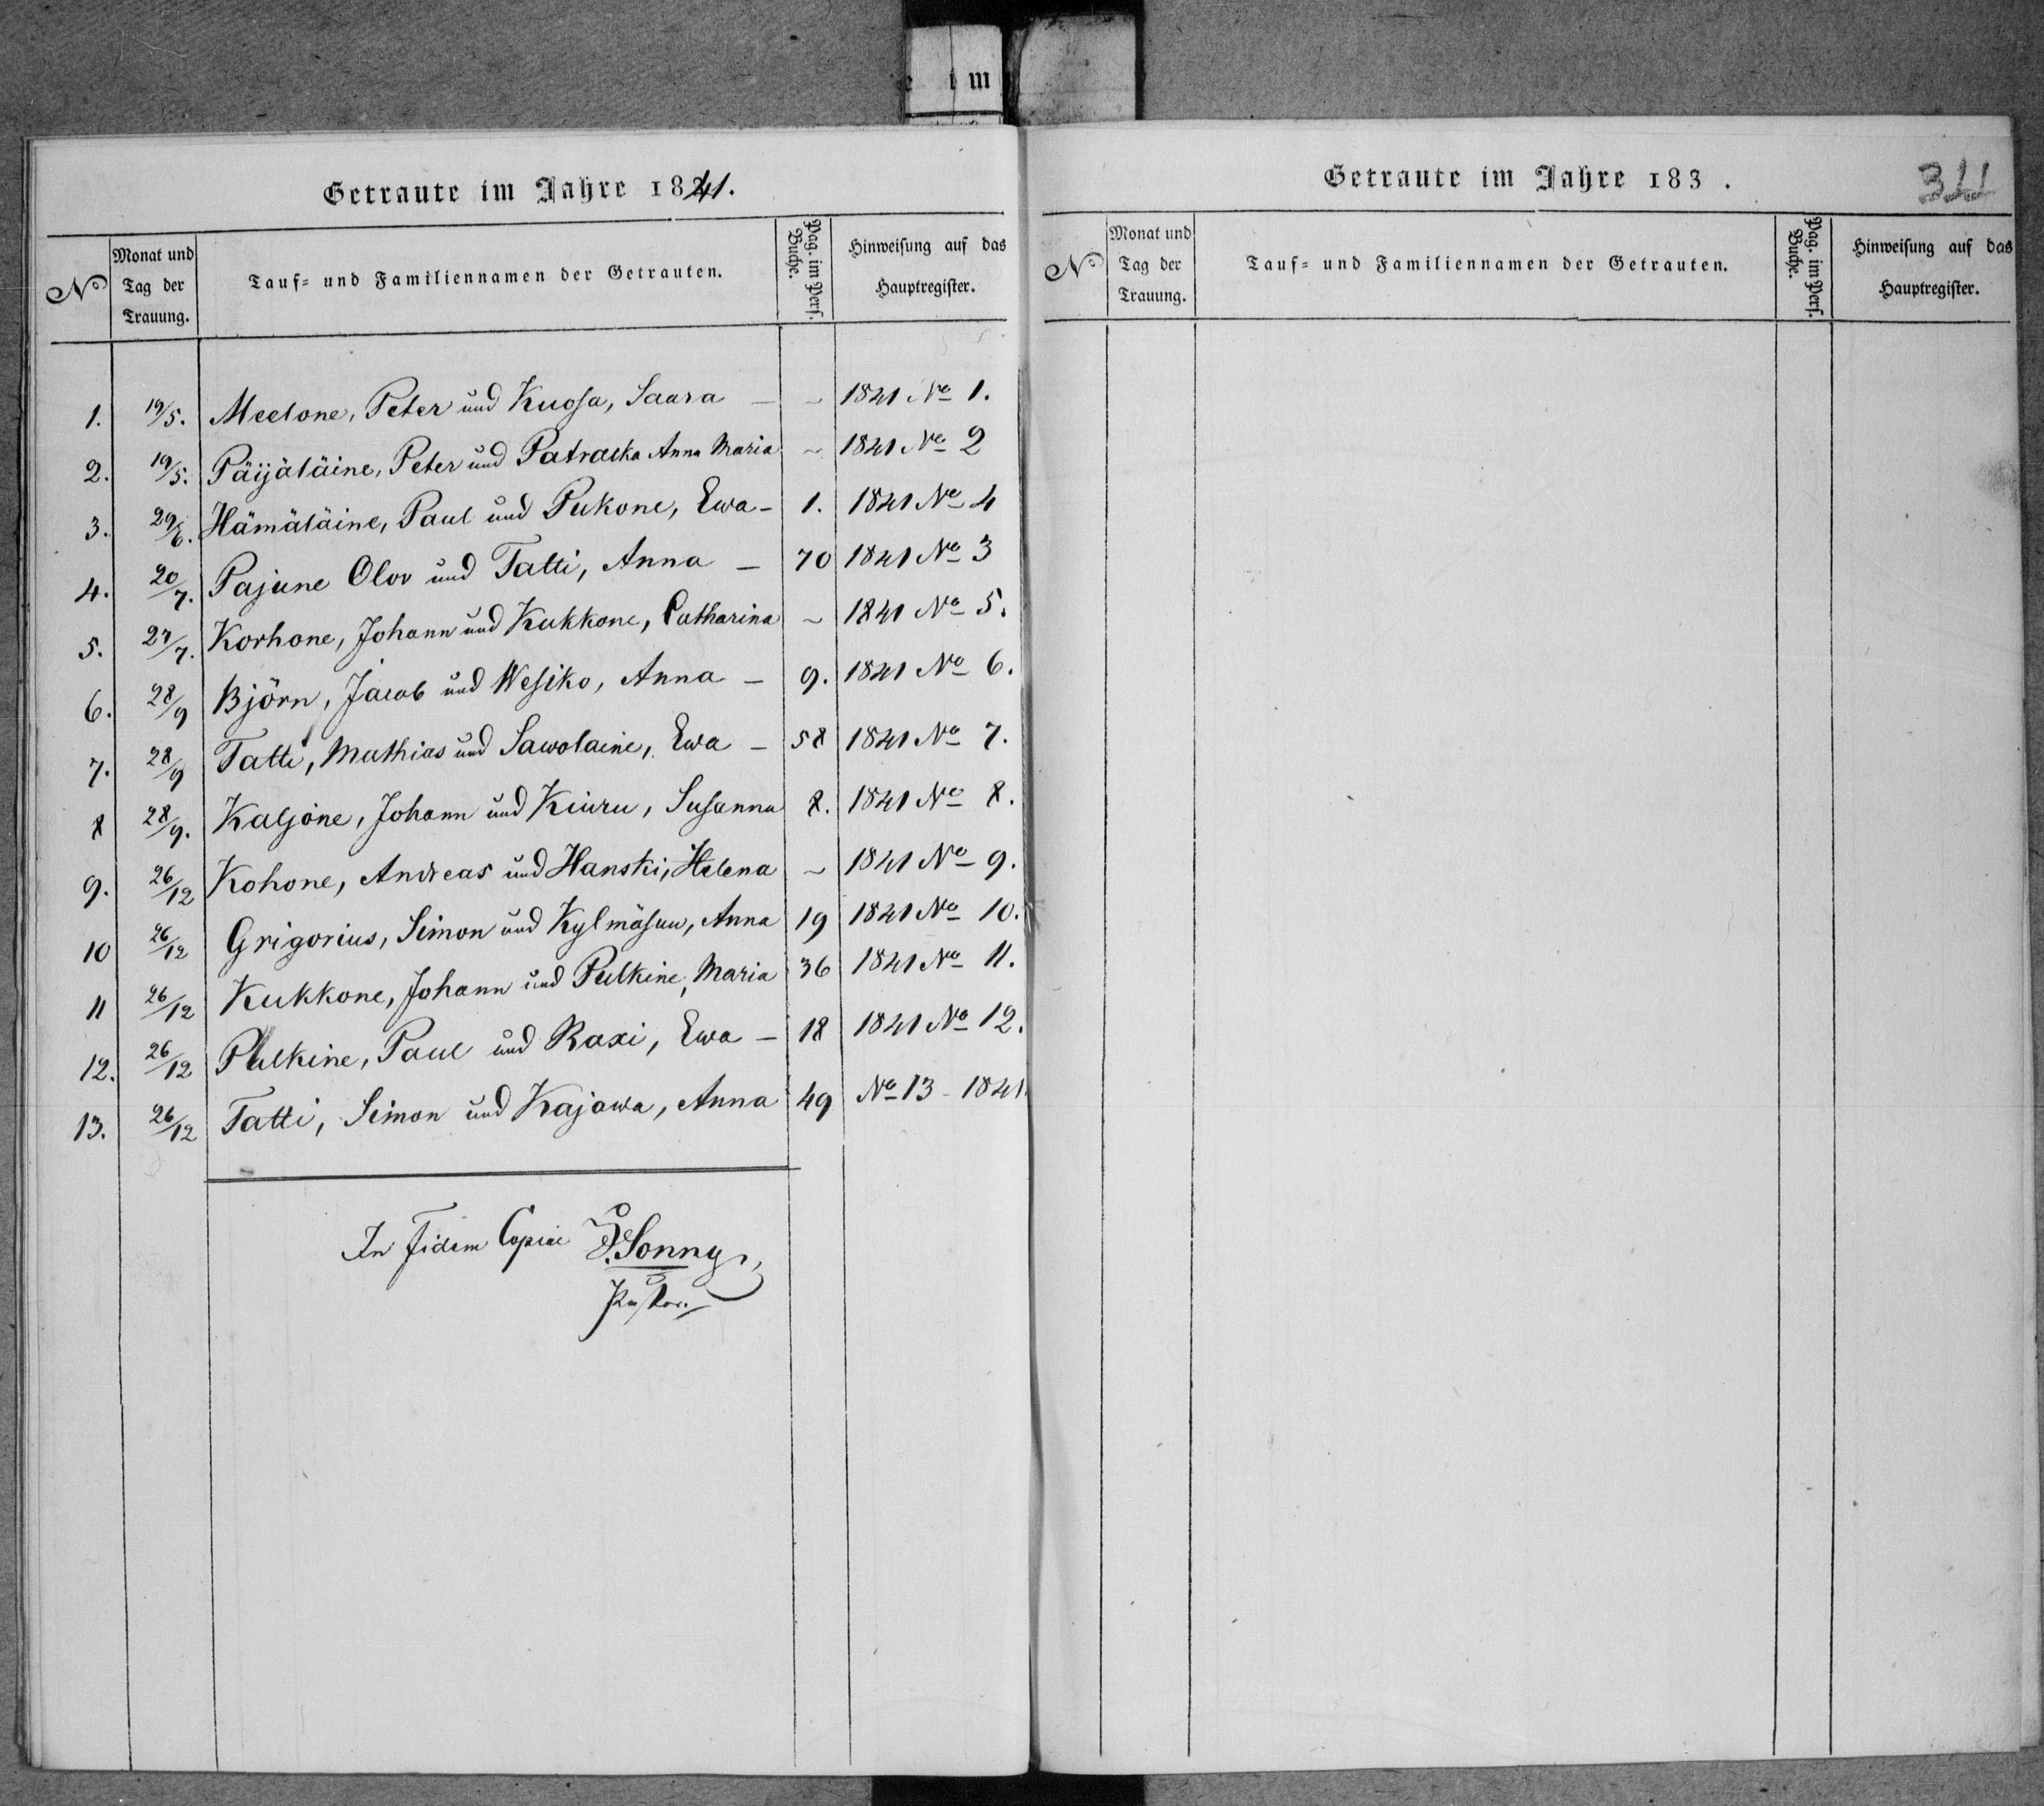 e im
Getraute im Jahre 1841.
No
Monat und Tag der Trauung.
Tauf- und Familiennamen der Getrauten.
Pag. im Pers. Buche.
Hinweisung auf das Hauptregister.
1. 19/5. Meelone, Peter und Kuosa, Saara — ~ 1841 No 1.
2. 19/5. Päijäläine, Peter und Patracka Anna Maria ~ 1841 No 2
3. 29/6. Hämäläine, Paul und Pukone, Ewa - 1. 1841 No 4
4. 20/7. Pajune Olov und Tatti, Anna — 70 1841 No 3
5. 27/7. Korhone, Johann und Kukkone, Catharina ~ 1841 No 5.
6. 28/9 Björn, Jacob und Wesiko, Anna — 9. 1841 No 6.
7. 28/9 Tatti, Mathias und Sawolaine, Ewa — 58 1841 No 7.
8 28/9. Kaljone, Johann und Kiuru, Susanna 8. 1841 No 8.
9. 26/12 Kohone, Andreas und Hanski, Helena ~ 1841 No 9.
10 26/12 Grigorius, Simon und Kylmäsuu, Anna 19 1841 No 10.
11 26/12 Kukkone, Johann und Pulkine, Maria 36 1841 No 11.
12. 26/12 Pulkine, Paul und Raxi, Ewa — 18 1841 No 12.
13. 26/12 Tatti, Simon und Kajawa, Anna 49 No 13 - 1841.
In Fidem Copiae Sonny,
Pastor.
Getraute im Jahre 183 .
311
No
Monat und Tag der Trauung.
Tauf- und Familiennamen der Getrauten.
Pag. im Pers. Buche.
Hinweisung auf das Hauptregister.